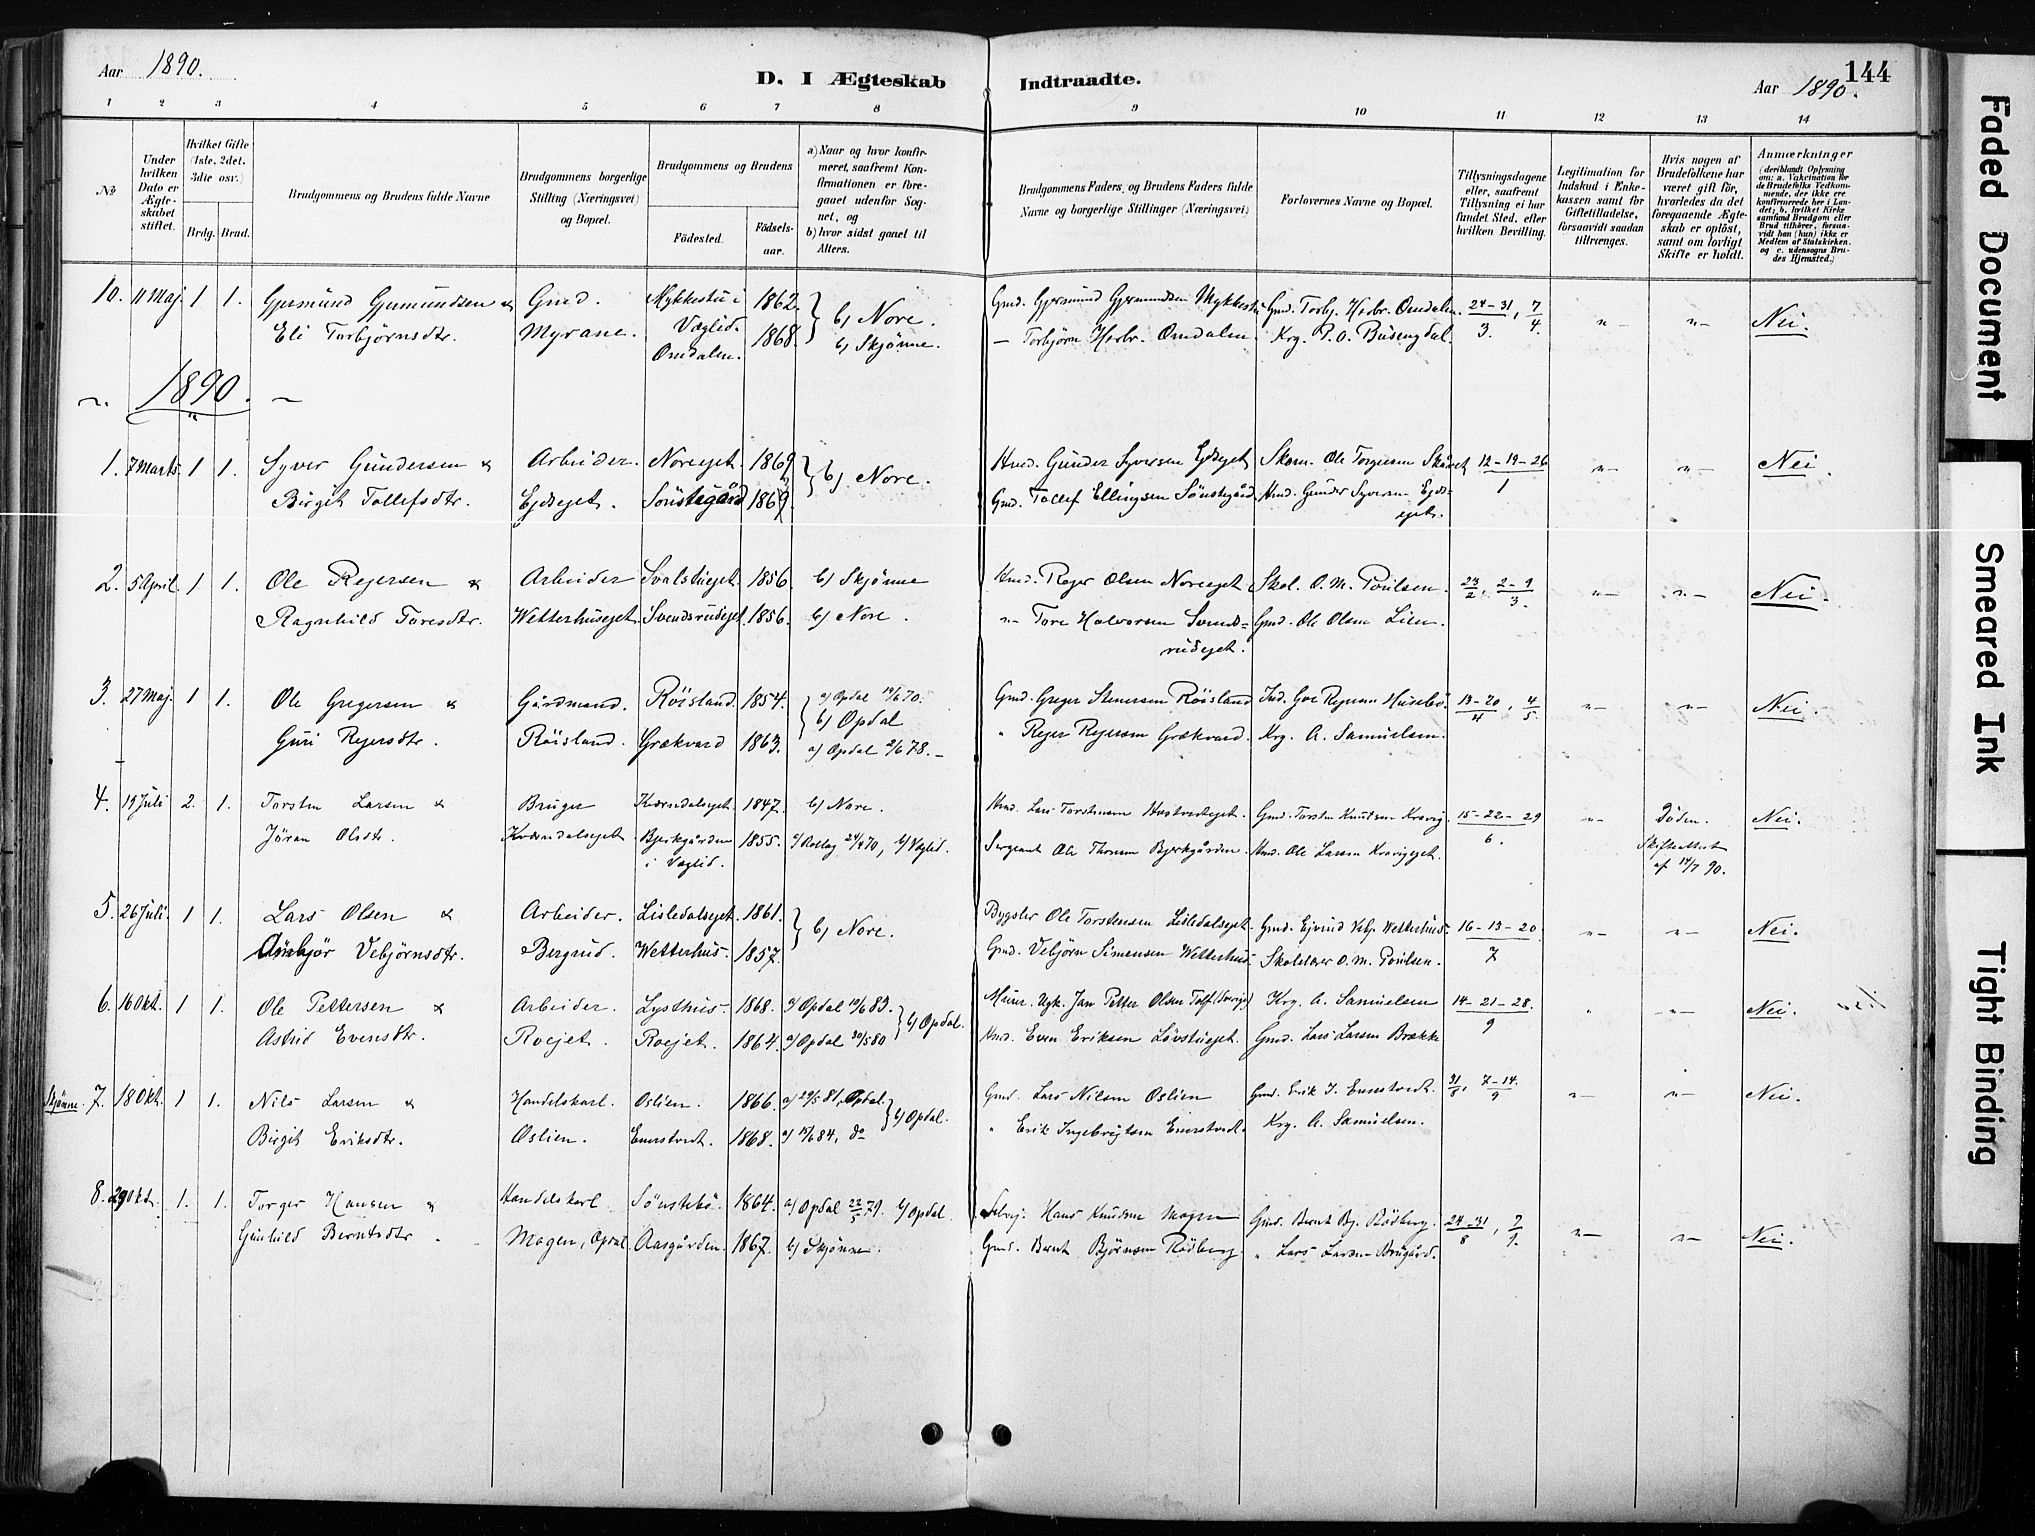 Aar 1890.
D. I Ægteskab Indtraadte.
Aar 1890.
144
1 2 3 4 5 6 7 8 9 10 11 12 13 14
No
Under hvilken Dato er Ægteskabet stiftet.
Hvilket Gifte (1ste, 2det, 3die osv.)
Brdg. Brud.
Brudgommens og Brudens fulde Navne
Brudgommens borgerlige Stilling (Næringsvei) og Bopæl.
Brudgommens og Brudens
Fødested. Fødselsaar.
a) Naar og hvor konfirmeret, saafremt Konfirmationen er foregaaet udenfor Sognet, og
b) hvor sidst gaaet til Alters.
Brudgommens Faders, og Brudens Faders fulde Navne og borgerlige Stillinger (Næringsvei)
Forlovernes Navne og Bopæl.
Tillysningsdagene eller, saafremt Tillysning ei har fundet Sted, efter hvilken Bevilling.
Legitimation for Indskud i Enkekassen samt for Giftetilladelse, forsaavidt saadan tiltrænges.
Hvis nogen af Brudefolkene har været gift før, hvorledes da det foregaaende Ægteskab er opløst, samt om lovligt Skifte er holdt.
Anmærkninger (deriblandt Oplysning om: a. Vakcination for de Brudefolks Vedkommende, der ikke ere konfirmerede her i Landet; b. hvilket Kirkesamfund Brudgom eller Brud tilhører, forsaavidt han (hun) ikke er Medlem af Statskirken, og c. udensogns Brudes Hjemsted.)
10. 11 Maj 1 1. Gjermund Gjermundsen & Gmd. Mykkestu i Væglid. 1862. b) Nore. Gmd. Gjermund Gjermundsen Mykkestu Gmd. Torbj. Herbr. Omdalen. 24-31/3, 7/4. "– "– Nei.
Eli Torbjørnsdtr. Myrane. Omdalen. 1868. b) Skjønne. – Torbjørn Herbr. Omdalen. Krg. P. O. Busengdal.
1890.
1. 7 Marts 1 1. Syver Gundersen & Arbeider. Noreejet. 1869 b) Nore. Hmd. Gunder Syversen Ejdsejet Skom. Ole Torgersen 12-19-26/1 "– "– Nei.
Birgit Tollefsdtr. Ejdsejet. Sønstegård 1869. Gmd. Tollef Ellingsen Sønstegård. Hmd. Gunder Syversen Ejdsejet.
2. 5 April. 1 1. Ole Rejersen & Arbeider Svalstuejet. 1856. b) Skjønne Hmd. Rejer Olsen Noreejet Skol. O. M. Poulsen. 23/2, 2-9/3. "– "– Nei.
Ragnhild Toresdtr. Wetterhusejet. Svendsrudejet. 1856. b) Nore. "– Tore Halvorsen Svendsrudejet. Gmd. Ole Olsen Lien.
3. 27 Maj. 1 1. Ole Gregersen & Gårdmand. Røisland. 1854. a) Opdal 19/6 70. b) Opdal Gmd. Greger Stenersen Røisland Ind. Goe Rejersen Husebø. 13-20/4, 4/5 "– "– Nei.
Guri Rejersdtr. Røisland. Grækvard 1863. a) Opdal 2/6 78. – " Rejer Rejersen Grækvard. Krg. A. Samuelsen.
4. 19 Juli 2. 1. Torsten Larsen & Bruger Kværndalsejet. 1847. b) Nore. Hmd. Lars Torstensen Gmd. Torsten Knudsen Kravig 15-22-29/6. "– Døden. Nei.
Jøran Olsdtr. Kværndalsejet. Bjerkgården i Væglid. 1855. a) Rollag 24/4 70, b) Væglid. Sergeant Ole Thorsen Bjerkgården. Hmd. Ole Larsen Kravigejet. Skifteattest af 14/7 90.
5. 26 Juli. 1 1. Lars Olsen & Arbeider. Lisledalsejet. 1861. b) Nore. Bygsler Ole Torstensen Lisledalsejet. Gmd. Ejvind Vebj. Wetterhus. 16-13-20/7 "– "– Nei.
Vebjørnsdtr. Bergrud. Wetterhus. 1857. Gmd. Vebjørn Simensen Wetterhus. Skolelærer O. M. Poulsen.
6. 16 Okt. 1 1. Ole Pettersen & Arbeider. Lysthus. 1868. a) Opdal 10/6 83. b) Opdal. Murer. Ugk. Jan Petter Olsen Krg. A. Samuelsen 14-21-28./9 " "– Nei.
Astrid Evensdtr. Roejet. Roejet. 1864. a) Opdal 30/5 80 Hmd. Even Eriksen Løvstuejet. Gmd. Lars Larsen Brække
Skjønne. 7. 18 Okt. 1 1. Nils Larsen & Handelskarl. Oslien. 1866. a) 29/5 81, Opdal. b) Opdal. Gmd. Lars Nilsen Oslien Gmd. Erik I. Enerstvedt. 31/8, 7-14./9 "– "– Nei.
Birgit Eriksdtr. Oslien. Enerstvedt. 1868. a) 15/6 84, do " Erik Ingebrigtsen Enerstvedt. Krg. A. Samuelsen.
8. 29 Okt. 1. 1. Torger Hansen & Handelskarl Sønstebø. 1864. a) Opdal 22/5 79. b) Opdal. Selvej. Hans Knudsen Magen Gmd. Bernt Bj. Rødberg. 24-31/8, 7/9. "– "– Nei.
Gunhild Berntsdtr. Magen, Opdal. Aasgården. 1867. b) Skjønne. Gmd. Bernt Bjørnsen Rødberg " Lars Larsen Brugård.
Faded Document
Smeared Ink
Tight Binding